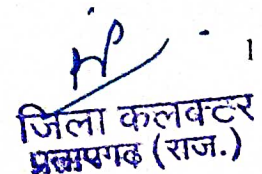 1
जिला कलक्टर
प्रतापगढ़ (राज.)